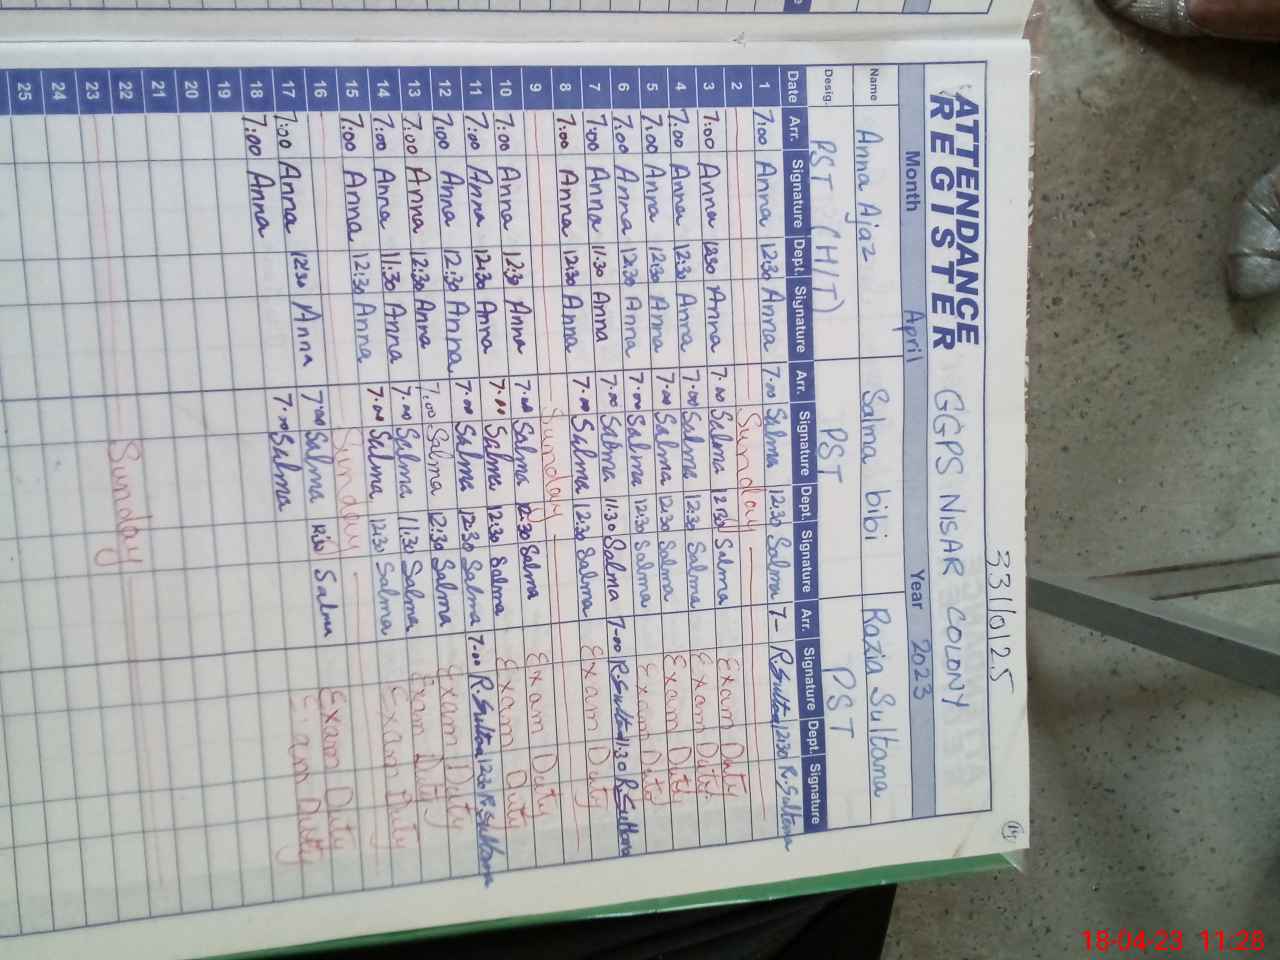 33110125
ATTENDANCE REGISTER GGPS NISAR COLONY
Month April Year 2023
Name Anna Ajaz Salma bibi Razia Sultana
Desig. PST (H/T) PST PST
Date Arr. Signature Dept. Signature Arr. Signature Dept. Signature Arr. Signature Dept. Signature
1 7:00 Anna 12:30 Anna 7:00 Salma 12:30 Salma 7- R.Sultana 12:30 R.Sultana
2 Sunday
3 7:00 Anna 12:30 Anna 7:00 Salma 12:30 Salma Exam Duty
4 7:00 Anna 12:30 Anna 7:00 Salma 12:30 Salma Exam Duty
5 7:00 Anna 12:30 Anna 7:00 Salma 12:30 Salma Exam Duty
6 7:00 Anna 12:30 Anna 7:00 Salma 12:30 Salma Exam Duty
7 7:00 Anna 11:30 Anna 7:00 Salma 11:30 Salma 7-00 R.Sultana 11:30 R.Sultana
8 7:00 Anna 12:30 Anna 7:00 Salma 12:30 Salma Exam Duty
9 Sunday
10 7:00 Anna 12:30 Anna 7:00 Salma 12:30 Salma Exam Duty
11 7:00 Anna 12:30 Anna 7:00 Salma 12:30 Salma Exam Duty
12 7:00 Anna 12:30 Anna 7:00 Salma 12:30 Salma 7-00 R.Sultana 12:30 R.Sultana
13 7:00 Anna 12:30 Anna 7:00 Salma 12:30 Salma Exam Duty
14 7:00 Anna 11:30 Anna 7:00 Salma 11:30 Salma Exam Duty
15 7:00 Anna 12:30 Anna 7:00 Salma 12:30 Salma Exam Duty
16 Sunday
17 7:00 Anna 12:30 Anna 7:00 Salma 12:30 Salma Exam Duty
18 7:00 Anna 7:00 Salma Exam Duty
19
20
21
22
23 Sunday
24
25
18-04-23 11:28